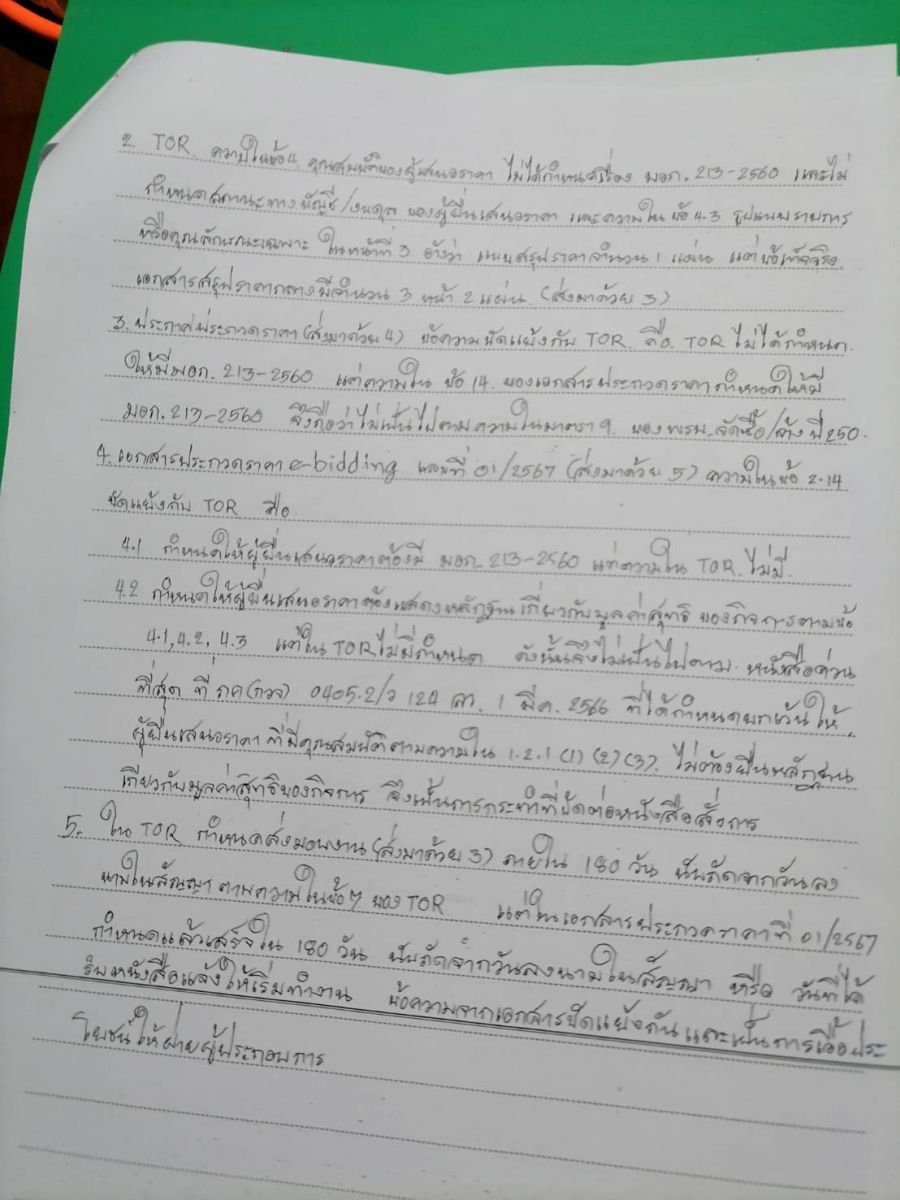 2. TOR. ความในข้อ 4. คุณสมบัติของผู้เสนอราคา ไม่ได้กำหนดเรื่อง มอก. 213-2560 และไม่
กำหนดสถานะทางบัญชี/งบดุล ของผู้ยื่นเสนอราคา และความใน ข้อ 4.3 รูปแบบรายการ
หรือคุณลักษณะเฉพาะ ในหน้าที่ 3 อ้างว่า แบบสรุปราคาจำนวน 1 แผ่น แต่ข้อเท็จจริง
เอกสารสรุปราคากลางมีจำนวน 3 หน้า 2 แผ่น. (ส่งมาด้วย 3)
3. ประกาศประกวดราคา (ส่งมาด้วย 4) ข้อความขัดแย้งกับ TOR. คือ. TOR ไม่ได้กำหนด.
ให้มีมอก. 213-2560 แต่ความใน ข้อ 14. ของเอกสารประกวดราคา กำหนดให้มี
มอก. 213-2560 จึงถือว่าไม่เป็นไปตามความในมาตรา 9. ของ พรบ. จัดซื้อ/จ้าง ปี 250.
4. เอกสารประกวดราคา e-bidding เลขที่ 01/2567 (ส่งมาด้วย 5) ความในข้อ 2.14
ขัดแย้งกับ TOR คือ
4.1 กำหนดให้ผู้ยื่นเสนอราคาต้องมี มอก. 213-2560 แต่ความใน TOR. ไม่มี.
4.2 กำหนดให้ผู้ยื่นเสนอราคาต้องแสดงหลักฐานเกี่ยวกับมูลค่าสุทธิ ของกิจการตามข้อ
4.1, 4.2, 4.3 แต่ใน TOR ไม่มีกำหนด ดังนั้นจึงไม่เป็นไปตาม. หนังสือด่วน
ที่สุด ที่ กค (กวจ) 0405.2/ว 124 ลว. 1 มีค. 2566 ที่ได้กำหนดยกเว้นให้.
ผู้ยื่นเสนอราคา ที่มีคุณสมบัติตามความใน 1.2.1 (1) (2) (3). ไม่ต้องยื่นหลักฐาน
เกี่ยวกับมูลค่าสุทธิของกิจการ จึงเป็นการกระทำที่ขัดต่อหนังสือสั่งการ
5. ใน TOR กำหนดส่งมอบงาน (ส่งมาด้วย 3) ภายใน 180 วัน นับถัดจากวันลง
นามในสัญญา ตามความในข้อ 7 ของ TOR แต่ในเอกสารประกวดราคาที่ 01/2567
กำหนดแล้วเสร็จใน 180 วัน นับถัดจากวันลงนามในสัญญา หรือ วันที่ได้
รับหนังสือแจ้งให้เริ่มทำงาน ข้อความจากเอกสารขัดแย้งกัน และเป็นการเอื้อประ
โยชน์ให้ฝ่ายผู้ประกอบการ